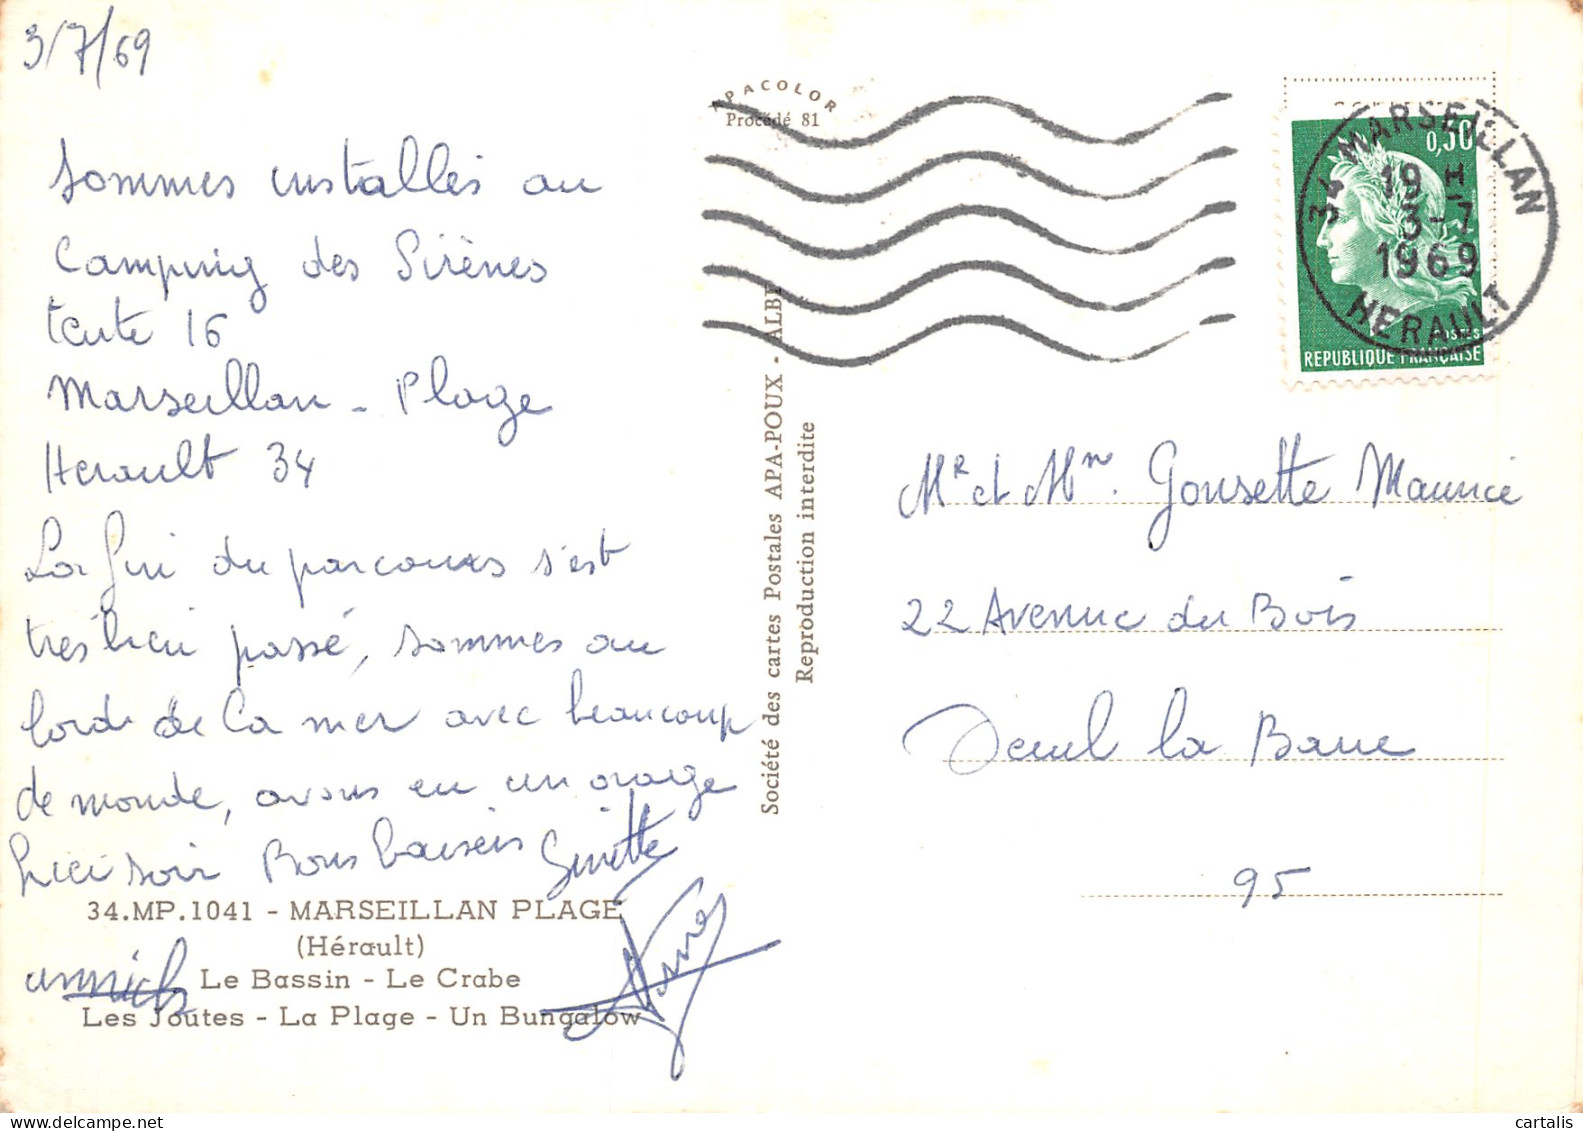 3/7/69
Sommes installés au
Camping des Sirènes
tente 16
Marseillan - Plage
Herault 34
La fin du parcours s'est
très bien passé, sommes au
bord de la mer avec beaucoup
de monde, avons eu un orage
hier soir Bons baisers Ginette
annick
34.MP.1041 - MARSEILLAN PLAGE
(Hérault)
Le Bassin - Le Crabe
Les Joutes - La Plage - Un Bungalow
APACOLOR
Procédé 81
Société des cartes Postales APA-POUX - ALBI
Reproduction interdite
0,30
POSTES
REPUBLIQUE FRANÇAISE
34 MARSEILLAN
19 H
3-7
1969
HERAULT
Mr et Mme. Gousette Maurice
22 Avenue du Bois
Deuil la Barre
95